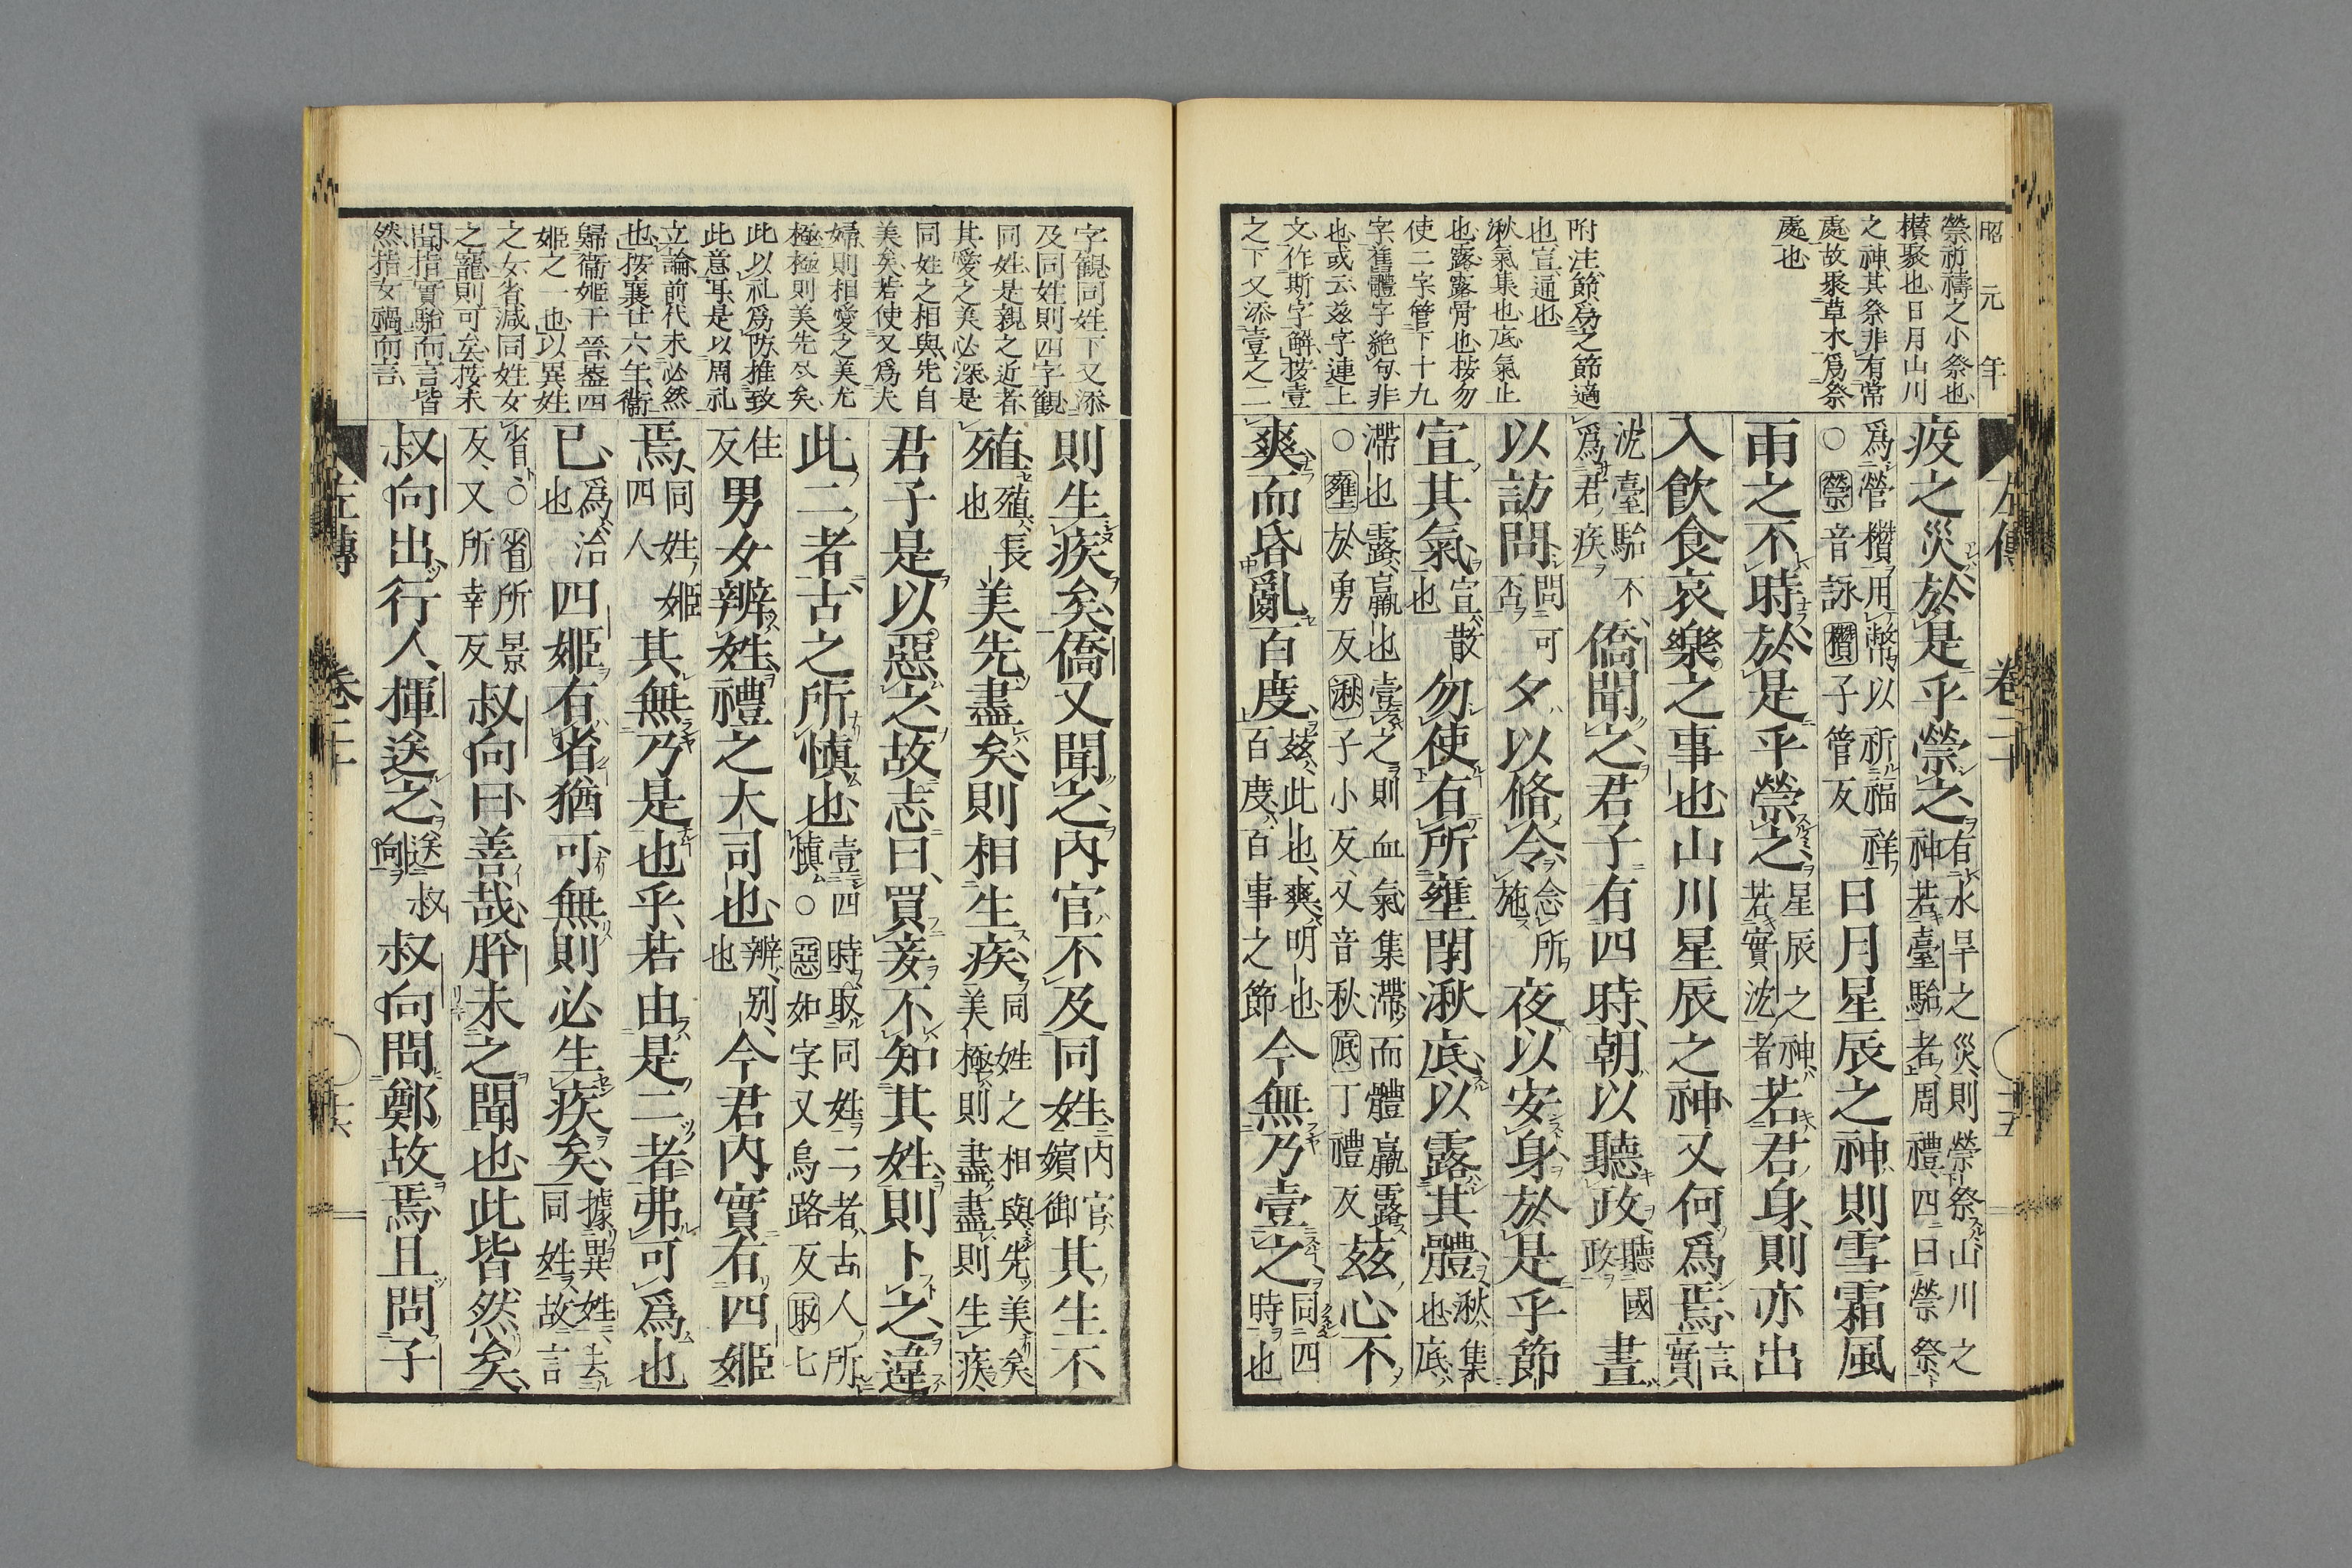 昭元年
禜祈禱之小祭也
欑聚也日月山川
之神其祭非有常
處故聚草木爲祭
處也
附注節爲之節適
也宣通也
湫氣集也底氣止
也露露骨也按勿
使二字管下十九
字舊體字絶句非
也或云茲字連上
文作斯字解按壹
之下又添壹之二
疫之災於是乎禜之有水旱之災則禜祭山川之神若臺駘者周禮四曰禜祭
爲營欑用幣以祈福祥○禜音詠欑子管反日月星辰之神則雪霜風
雨之不時於是乎禜之星辰之神若實沈者若君身則亦出
入飲食哀樂之事也山川星辰之神又何爲焉言實
沈臺駘不爲君疾僑聞之君子有四時朝以聽政聽國政晝
以訪問問可否夕以脩令念所施夜以安身於是乎節
宣其氣宣散也勿使有所壅閉湫底以露其體湫集也底
滯也露羸也壹之則血氣集滯而體羸露○壅於勇反湫子小反又音秋底丁禮反茲心不
爽而昏亂百度茲此也爽明也百度百事之節今無乃壹之同四時也
字觀同姓下又添
及同姓則四字觀
同姓是親之近者
其愛之美必深是
同姓之相與先自
美矣若使又爲夫
婦則相愛之美尤
極極則美先尽矣
此以礼爲防推致
此意耳是以周礼
立論前代未必然
也按襄廿六年衞
歸衞姬于晉蓋四
姬之一也以異姓
之女省減同姓女
之寵則可矣按未
聞指實駘而言皆
然指女禍而言
則生疾矣僑又聞之內官不及同姓內官嬪御其生不
殖殖長也美先盡矣則相生疾同姓之相與先美矣美極則盡盡則生疾
君子是以惡之故志曰買妾不知其姓則卜之違
此二者古之所愼也壹四時取同姓二者古人所愼○惡如字又烏路反取七
住反男女辨姓禮之大司也辨別也今君內實有四姬
焉同姓姬四人其無乃是也乎若由是二者弗可爲也
已爲治也四姬有省猶可無則必生疾矣據異姓去同姓故言
省○省所景反又所幸反叔向曰善哉肸未之聞也此皆然矣
叔向出行人揮送之送叔向叔向問鄭故焉且問子